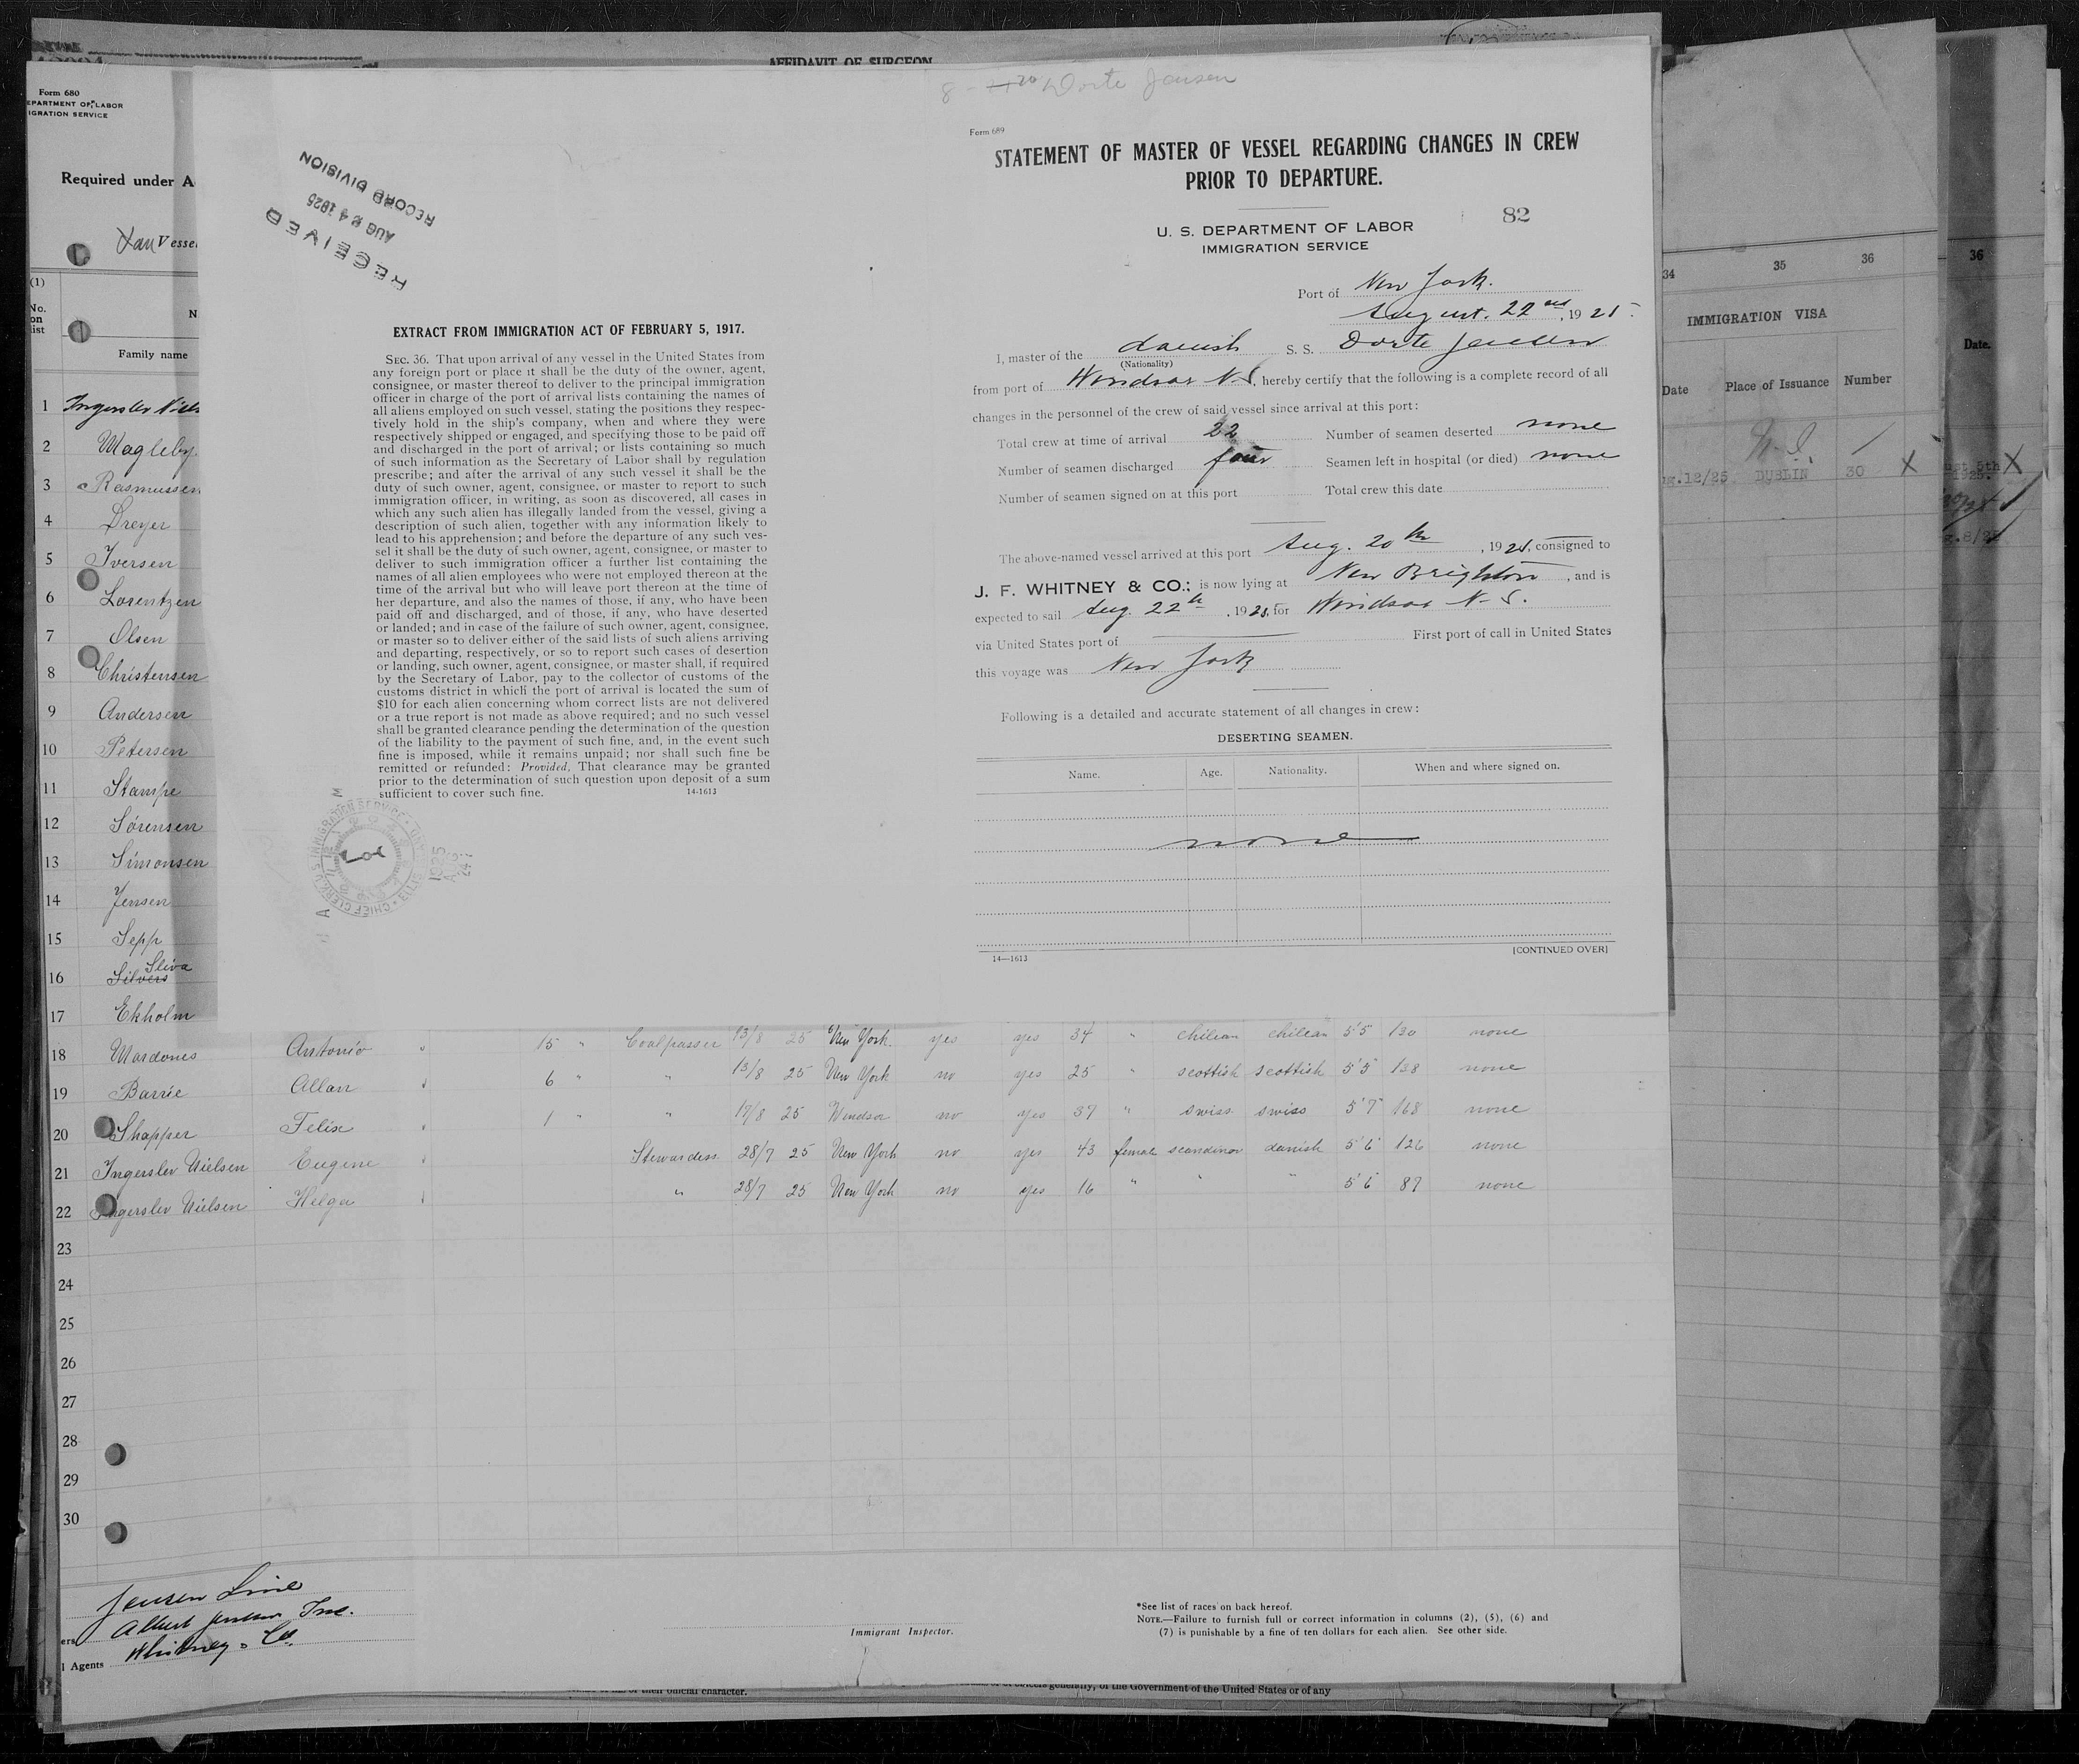 AFFIDAVIT OF SURGEON
Form 680
EPARTMENT OF LABOR
IGRATION SERVICE
Required under A
Vesse
(1)
No.
on
list
N
Family name
1 Ingerslev Niels
2 Magleby
3 Rasmussen
4 Dreyer
5 Iversen
6 Lorentzen
7 Olsen
8 Christensen
9 Andersen
10 Petersen
11 Stampe
12 Sørensen
13 Simonsen
14 Jensen
15 Sepp
Sliva
16 Silvers
17 Ekholm
RECEIVED
AUG 24 1925
RECORD DIVISION
EXTRACT FROM IMMIGRATION ACT OF FEBRUARY 5, 1917.
SEC. 36. That upon arrival of any vessel in the United States from
any foreign port or place it shall be the duty of the owner, agent,
consignee, or master thereof to deliver to the principal immigration
officer in charge of the port of arrival lists containing the names of
all aliens employed on such vessel, stating the positions they respec-
tively hold in the ship's company, when and where they were
respectively shipped or engaged, and specifying those to be paid off
and discharged in the port of arrival; or lists containing so much
of such information as the Secretary of Labor shall by regulation
prescribe; and after the arrival of any such vessel it shall be the
duty of such owner, agent, consignee, or master to report to such
immigration officer, in writing, as soon as discovered, all cases in
which any such alien has illegally landed from the vessel, giving a
description of such alien, together with any information likely to
lead to his apprehension; and before the departure of any such ves-
sel it shall be the duty of such owner, agent, consignee, or master to
deliver to such immigration officer a further list containing the
names of all alien employees who were not employed thereon at the
time of the arrival but who will leave port thereon at the time of
her departure, and also the names of those, if any, who have been
paid off and discharged, and of those, if any, who have deserted
or landed; and in case of the failure of such owner, agent, consignee,
or master so to deliver either of the said lists of such aliens arriving
and departing, respectively, or so to report such cases of desertion
or landing, such owner, agent, consignee, or master shall, if required
by the Secretary of Labor, pay to the collector of customs of the
customs district in which the port of arrival is located the sum of
$10 for each alien concerning whom correct lists are not delivered
or a true report is not made as above required; and no such vessel
shall be granted clearance pending the determination of the question
of the liability to the payment of such fine, and, in the event such
fine is imposed, while it remains unpaid; nor shall such fine be
remitted or refunded: Provided, That clearance may be granted
prior to the determination of such question upon deposit of a sum
sufficient to cover such fine. 14-1613
1925
AUG
24
Dorte Jensen
Form 689
STATEMENT OF MASTER OF VESSEL REGARDING CHANGES IN CREW
PRIOR TO DEPARTURE.
82
U. S. DEPARTMENT OF LABOR
IMMIGRATION SERVICE
Port of New York.
August. 22nd, 1925.
I, master of the danish S. S. Dorte Jensen
(Nationality)
from port of Windsor N.S., hereby certify that the following is a complete record of all
changes in the personnel of the crew of said vessel since arrival at this port:
Total crew at time of arrival 22 Number of seamen deserted none
Number of seamen discharged four Seamen left in hospital (or died) none
Number of seamen signed on at this port Total crew this date
The above-named vessel arrived at this port Aug. 20th, 1925, consigned to
J. F. WHITNEY & CO.; is now lying at New Brighton, and is
expected to sail Aug. 22, 1925, for Windsor N. S.
via United States port of First port of call in United States
this voyage was New York
Following is a detailed and accurate statement of all changes in crew:
DESERTING SEAMEN.
Name. Age. Nationality. When and where signed on.
none
14—1613 [CONTINUED OVER]
34 35 36
IMMIGRATION VISA
Date Place of Issuance Number
g.12/25 DUBLIN 30 X
36
Date.
ust 5th X
1925.
g.8/2
18 Mardones Antonio 15 " Coalpasser 13/8 25 New York yes yes 34 " chilean chilean 5'5 130 none
19 Barrie Allan 6 " " 13/8 25 New York no yes 25 " scottish scottish 5'5 138 none
20 Shapper Felix 1 " " 17/8 25 Windsor no yes 37 " swiss swiss 5'7 168 none
21 Ingerslev Nielsen Eugene Stewardess 28/7 25 New York no yes 43 female scandinav danish 5'6 126 none
22 Ingerslev Nielsen Helga " 28/7 25 New York no yes 16 " " " 5'6 87 none
23
24
25
26
27
28
29
30
Jensen Line
ers Albert Jensen Inc.
l Agents Whitney & Co.
Immigrant Inspector.
*See list of races on back hereof.
NOTE.—Failure to furnish full or correct information in columns (2), (5), (6) and
(7) is punishable by a fine of ten dollars for each alien. See other side.
of their official character.
officers generally, of the Government of the United States or of any